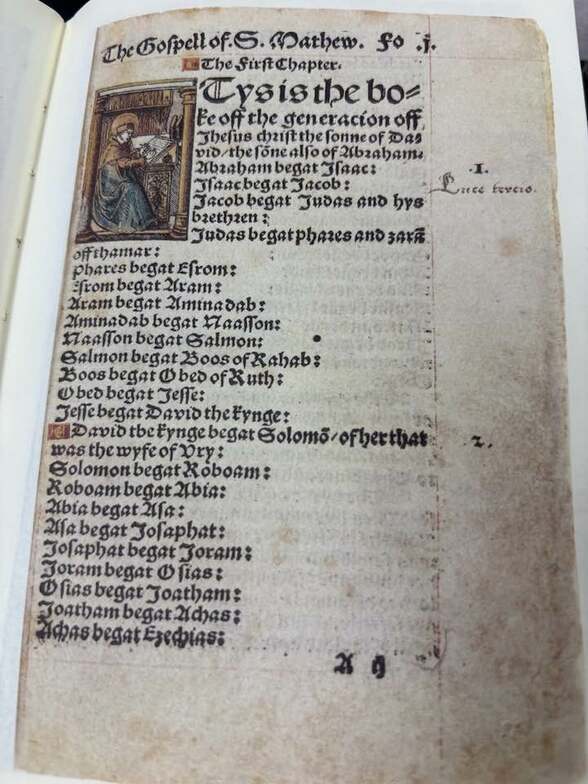 The Gospell of. S. Mathew. Fo .j.
The First Chapter.
Tys is the bo⸗
ke off the generacion off
Jhesus christ the sonne of Da⸗
vid/the sõne also of Abraham.
Abraham begat Isaac:
Isaac begat Jacob:
Jacob begat Judas and hys
brethren:
Judas begat phares and zarã
off thamar:
phares begat Esrom:
Esrom begat Aram:
Aram begat Aminadab:
Aminadab begat Naasson:
Naasson begat Salmon:
Salmon begat Boos of Rahab:
Boos begat Obed of Ruth:
Obed begat Jesse:
Jesse begat David the kynge:
David the kynge begat Solomõ/of her that
was the wyfe of Vry:
Solomon begat Roboam:
Roboam begat Abia:
Abia begat Asa:
Asa begat Josaphat:
Josaphat begat Joram:
Joram begat Osias:
Osias begat Joatham:
Joatham begat Achas:
Achas begat Ezechias:
A ij
.I.
Luce tercio.
2.